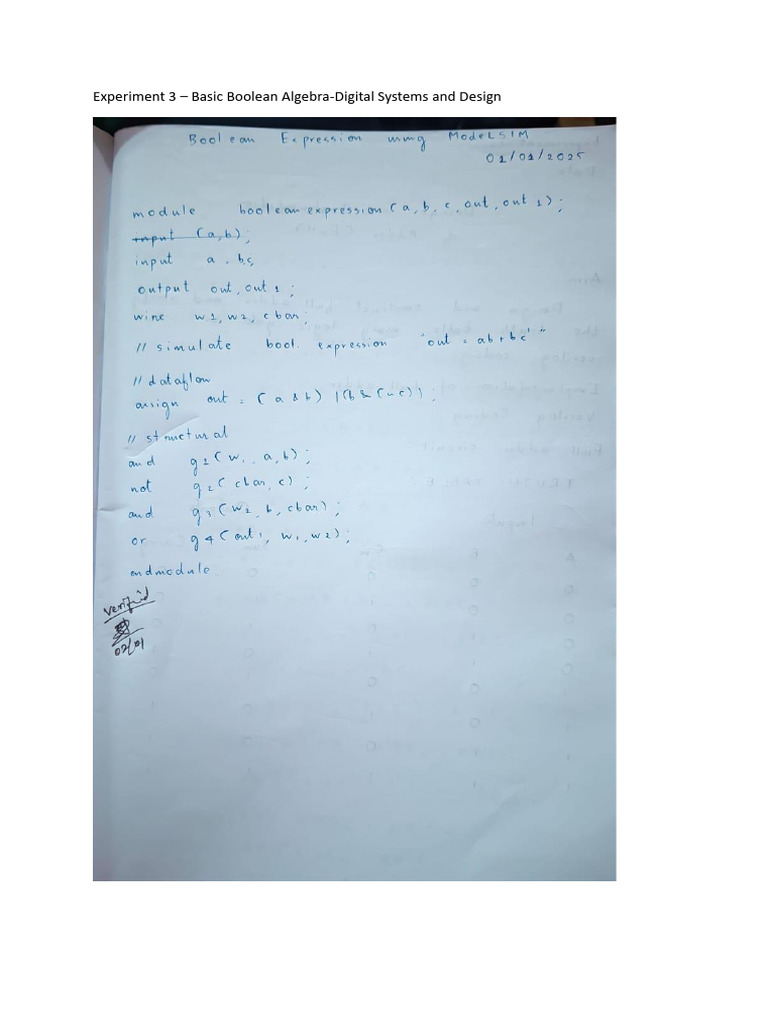 Experiment 3 – Basic Boolean Algebra-Digital Systems and Design
Boolean Expression using ModelSIM
02/01/2025
module boolean expression (a, b, c, out, out 1);
input (a,b);
input a, b,c
output out, out 1;
wire w1, w2, cbar;
// simulate bool. expression "out = ab + bc'"
// dataflow
assign out = (a & b) | (b & (~c));
// structural
and g1 (w1, a, b);
not g2 (cbar, c);
and g3 (w2, b, cbar);
or g4 (out1, w1, w2);
endmodule
Verified
02/01